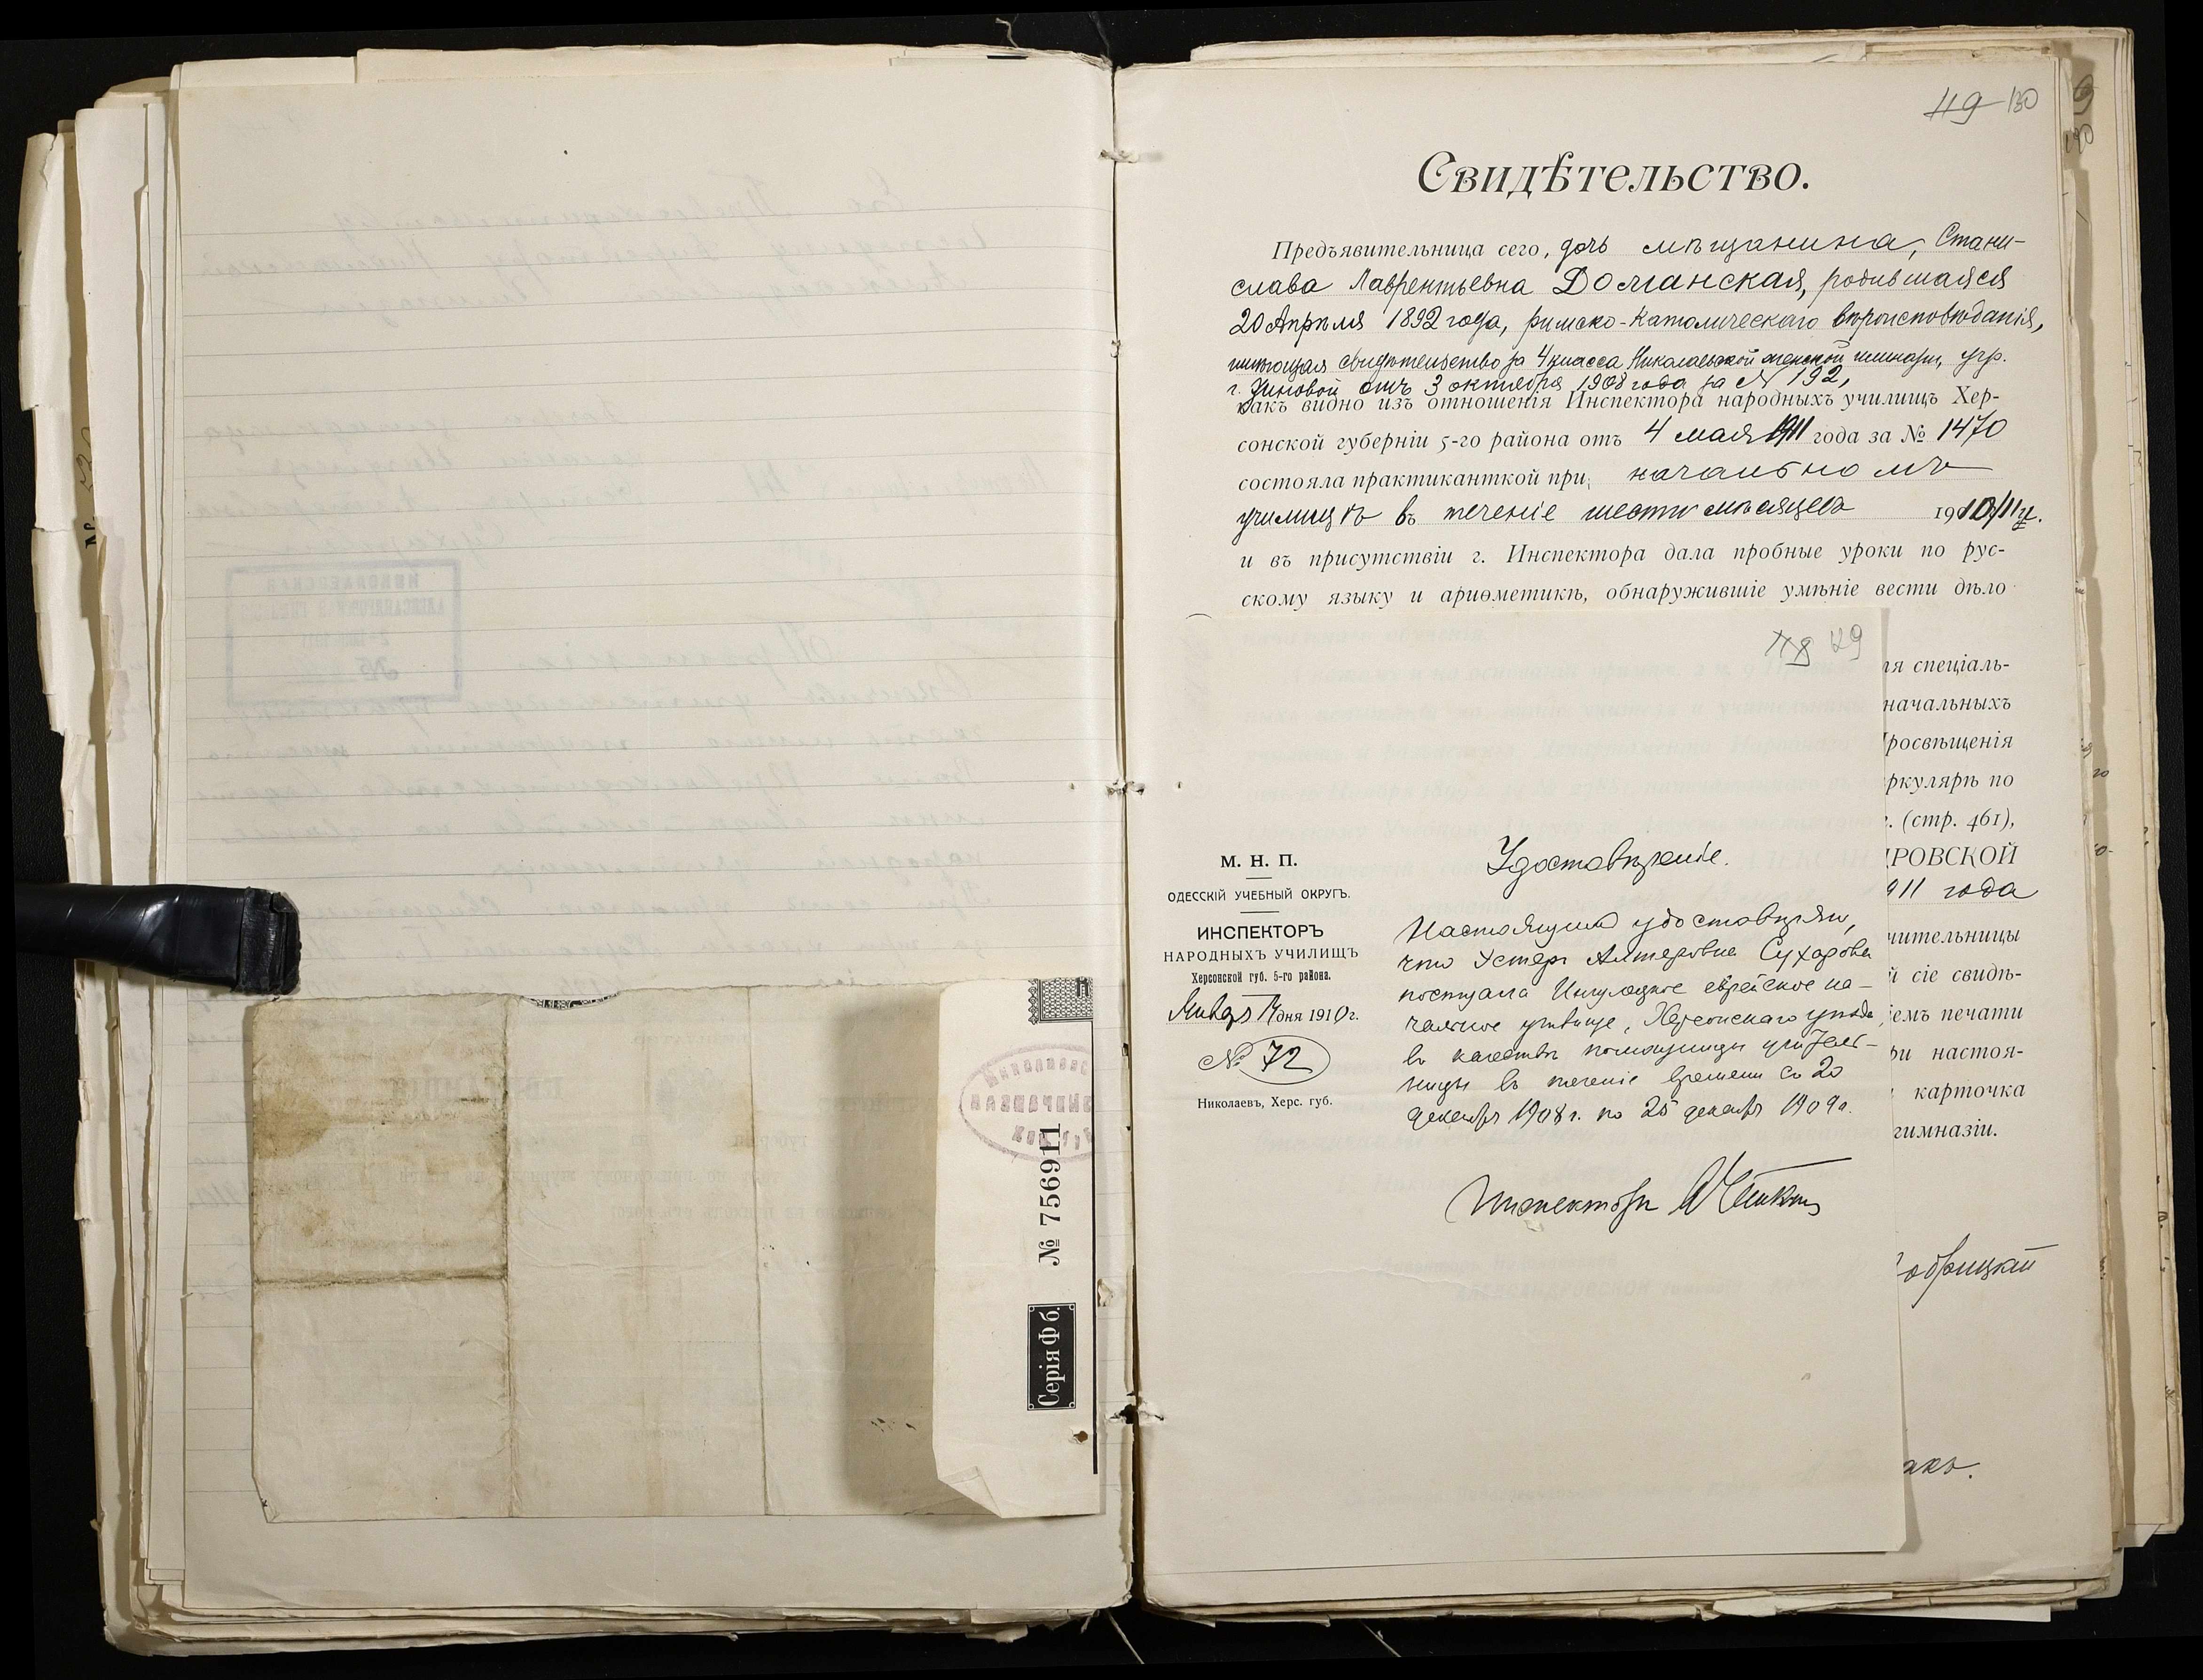 119 130
Свидѣтельство.
Предъявительница сего, дочь мѣщанина, Стани-
слава Лаврентьевна Доманская, родившаяся
20 Апрѣля 1892 года, римско-католическаго вѣроисповѣданія,
имѣющая свидѣтельство за 4 класса Николаевской женской гимназіи, учр.
г. отъ 3 октября 1908 года за № 192,
какъ видно изъ отношенія Инспектора народныхъ училищъ Хер-
сонской губерніи 5-го района отъ 4 мая 1911 года за № 1470
состояла практиканткой при начальномъ
училищѣ въ теченіе шести мѣсяцевъ 1910/11 г.
и въ присутствіи г. Инспектора дала пробные уроки по рус-
скому языку и ариѳметикѣ, обнаружившіе умѣніе вести дѣло
ія спеціаль-
начальныхъ
Просвѣщенія
ркулярѣ по
г. (стр. 461),
РОВСКОЙ
911 года
чительницы
й сіе свидѣ-
емъ печати
ри настоя-
карточка
гимназіи.
118 129
М. Н. П.
ОДЕССКІЙ УЧЕБНЫЙ ОКРУГЪ.
ИНСПЕКТОРЪ
НАРОДНЫХЪ УЧИЛИЩЪ
Херсонской губ. 5-го района.
Января 14 дня 1910 г.
№ 72
Николаевъ, Херс. губ.
Удостовѣреніе.
Настоящимъ удостовѣряю,
что Эстеръ Алтеровна Сухарова
посѣщала Ингулецкое еврейское на-
чальное училище, Херсонскаго уѣзда,
въ качествѣ помощницы учитель-
ницы въ теченіе времени съ 20
декабря 1908 г. по 25 декабря 1909 г.
Инспекторъ
№ 756911
Серія Фб.